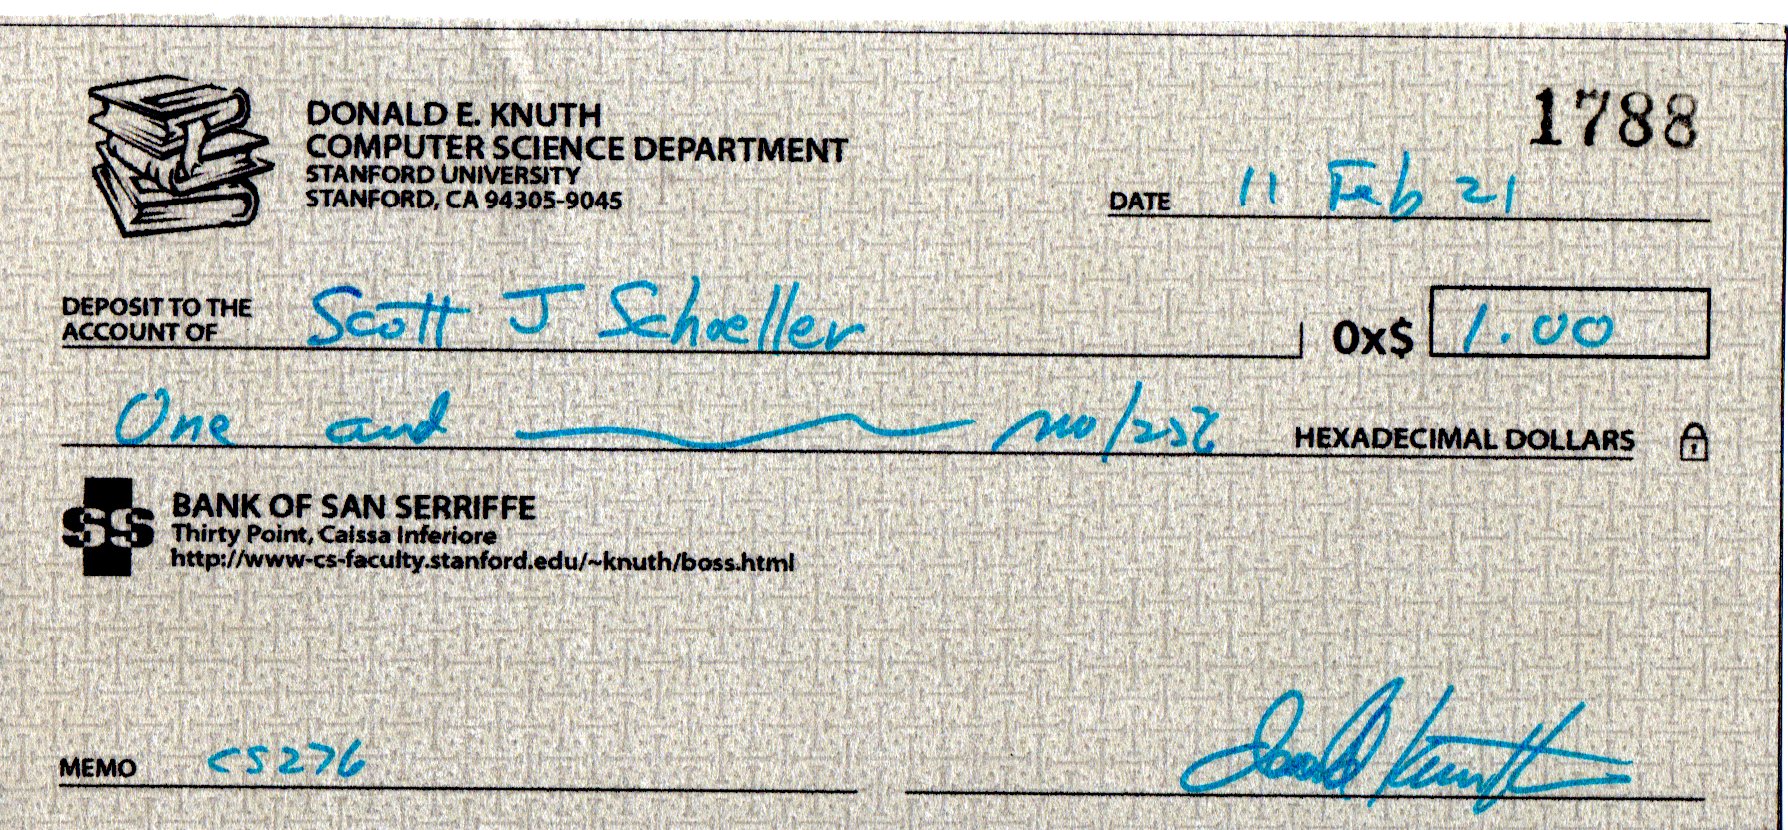 DONALD E. KNUTH
COMPUTER SCIENCE DEPARTMENT
STANFORD UNIVERSITY
STANFORD, CA 94305-9045
1788
DATE 11 Feb 21
DEPOSIT TO THE
ACCOUNT OF Scott J Schoeller
0x$ 1.00
One and no/256 HEXADECIMAL DOLLARS
SS
BANK OF SAN SERRIFFE
Thirty Point, Caissa Inferiore
http://www-cs-faculty.stanford.edu/~knuth/boss.html
MEMO CS276
Donald Knuth